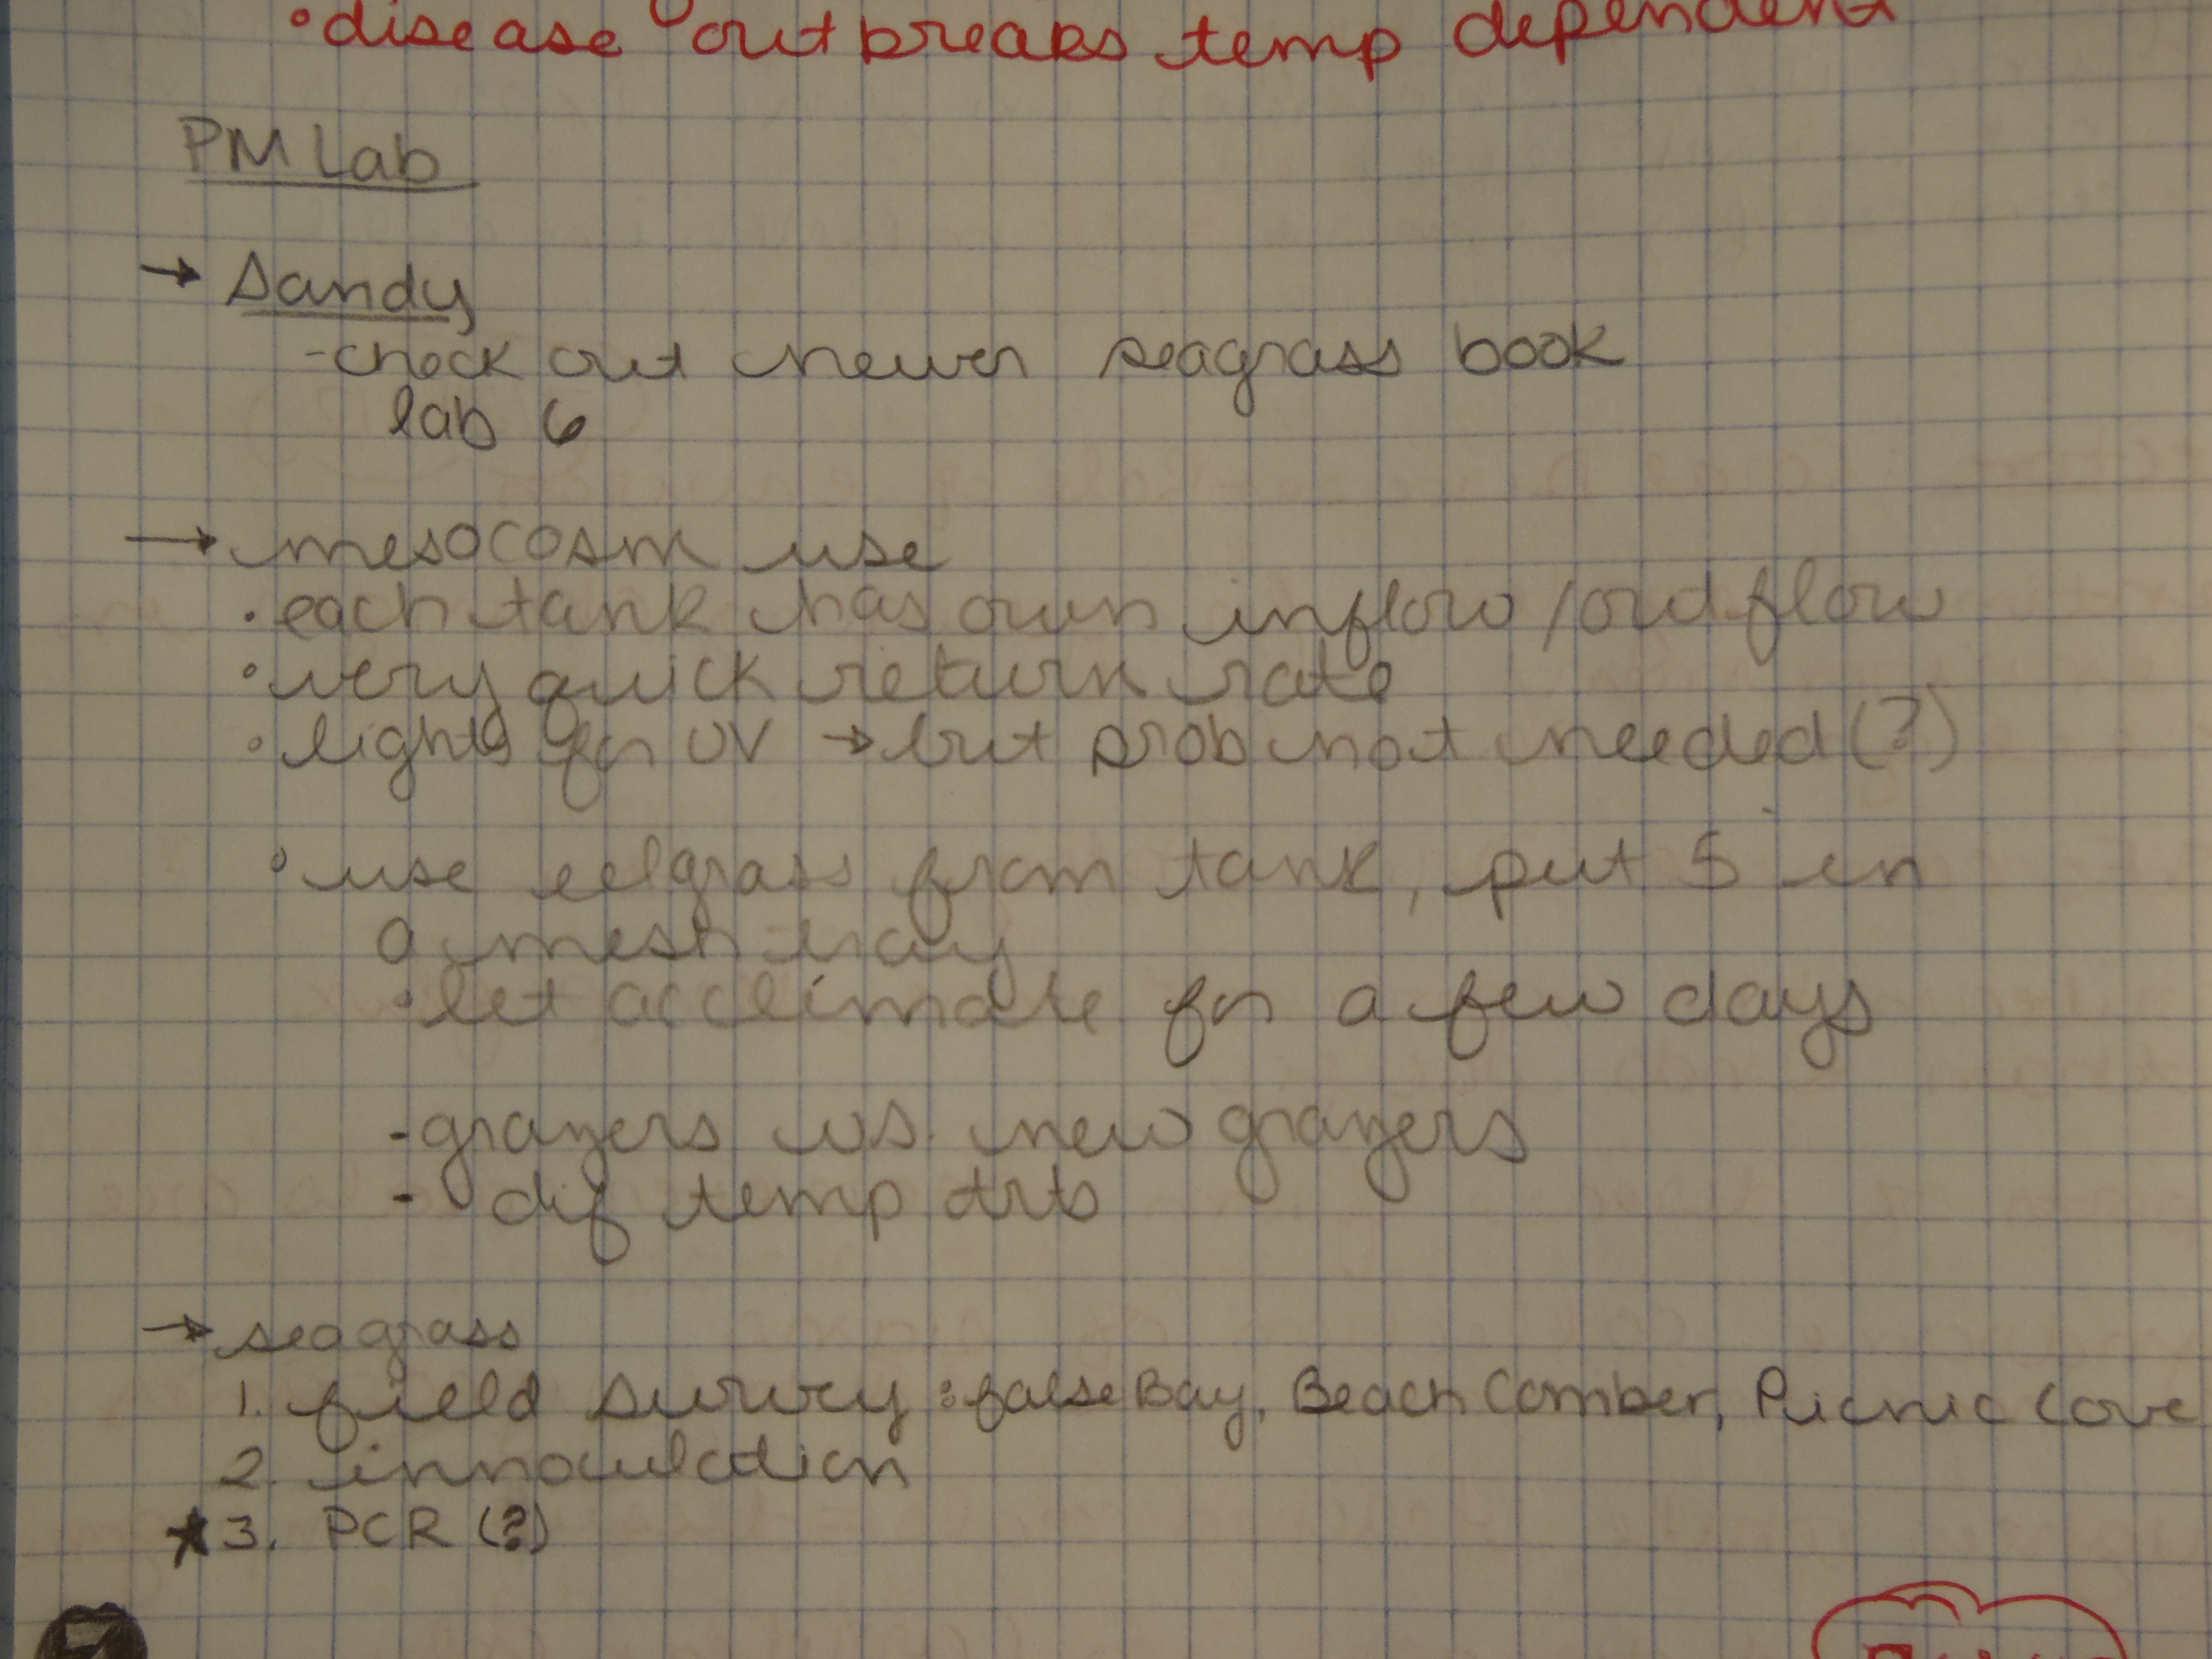 •disease outbreaks temp dependent
PM Lab
→ Sandy
-check out newer seagrass book
lab 6
→ mesocosm use
• each tank has own inflow/outflow
• very quick return rate
• lights for UV → but prob not needed (?)
• use eelgrass from tank, put 5 in
a mesh tray
• let acclimate for a few days
- grazers vs. new grazers
- dif temp trts
→ seagrass
1. field survey: false Bay, Beach Comber, Picnic Cove
2. innoculation
★3. PCR (?)